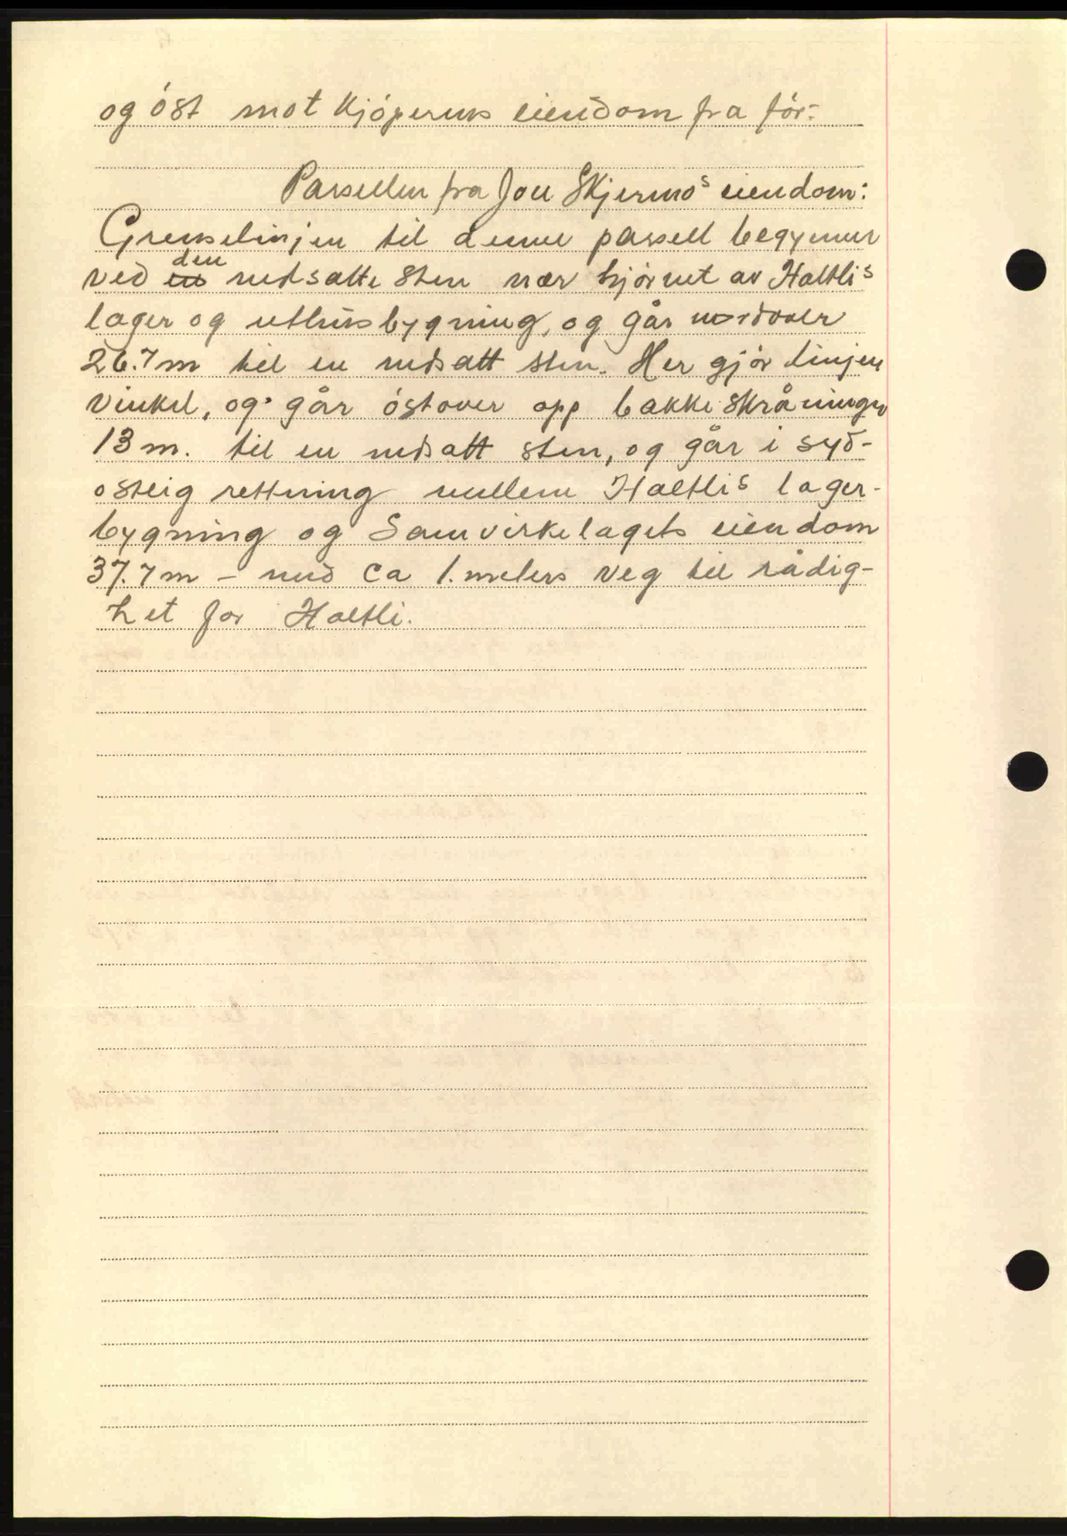 og óst mot Kjóperens eiendom fra fór.
Parsellen fra Jon Skjermo's eiendom:
Grenselinjen til denne parsell begynner
ved den nedsatte Sten nær hjórnet av Haltli's
lager og uthusbygning, og går nordover
26.7 m til en nedsatt sten. Her gjór linjen
Vinkel, og går óstover opp bakkeskråningen
13 m. til en nedsatt sten, og går i syd-
ostlig rettning mellem Haltli's lager-
bygning og Samvirkelagets eiendom
37.7 m – med ca 1. meters veg til rådig-
het for Haltli.